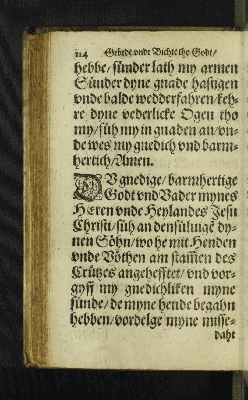 114 Gebede vnde Bichte tho Godt/
hebbe/ sünder lath my armen
Sünder dyne gnade hastigen
vnde balde wedderfahren/ keh-
re dyne vederlicke Ogen tho
my/ süh my in gnaden an/ vn-
de wes my gnedich vnd barm-
hertich/ Amen.
DV gnedige/ barmhertige
Godt vnd Vader mynes
HEren vnde Heylandes Jesu
Christi/ süh an densülugē dy-
nen Söhn/ wo he mit Henden
vnde Vöthen am stam̄en des
Crützes angehefftet/ vnd vor-
gyff my gnedichliken myne
sünde/ de myne hende begahn
hebben/ vordelge myne misse-
daht